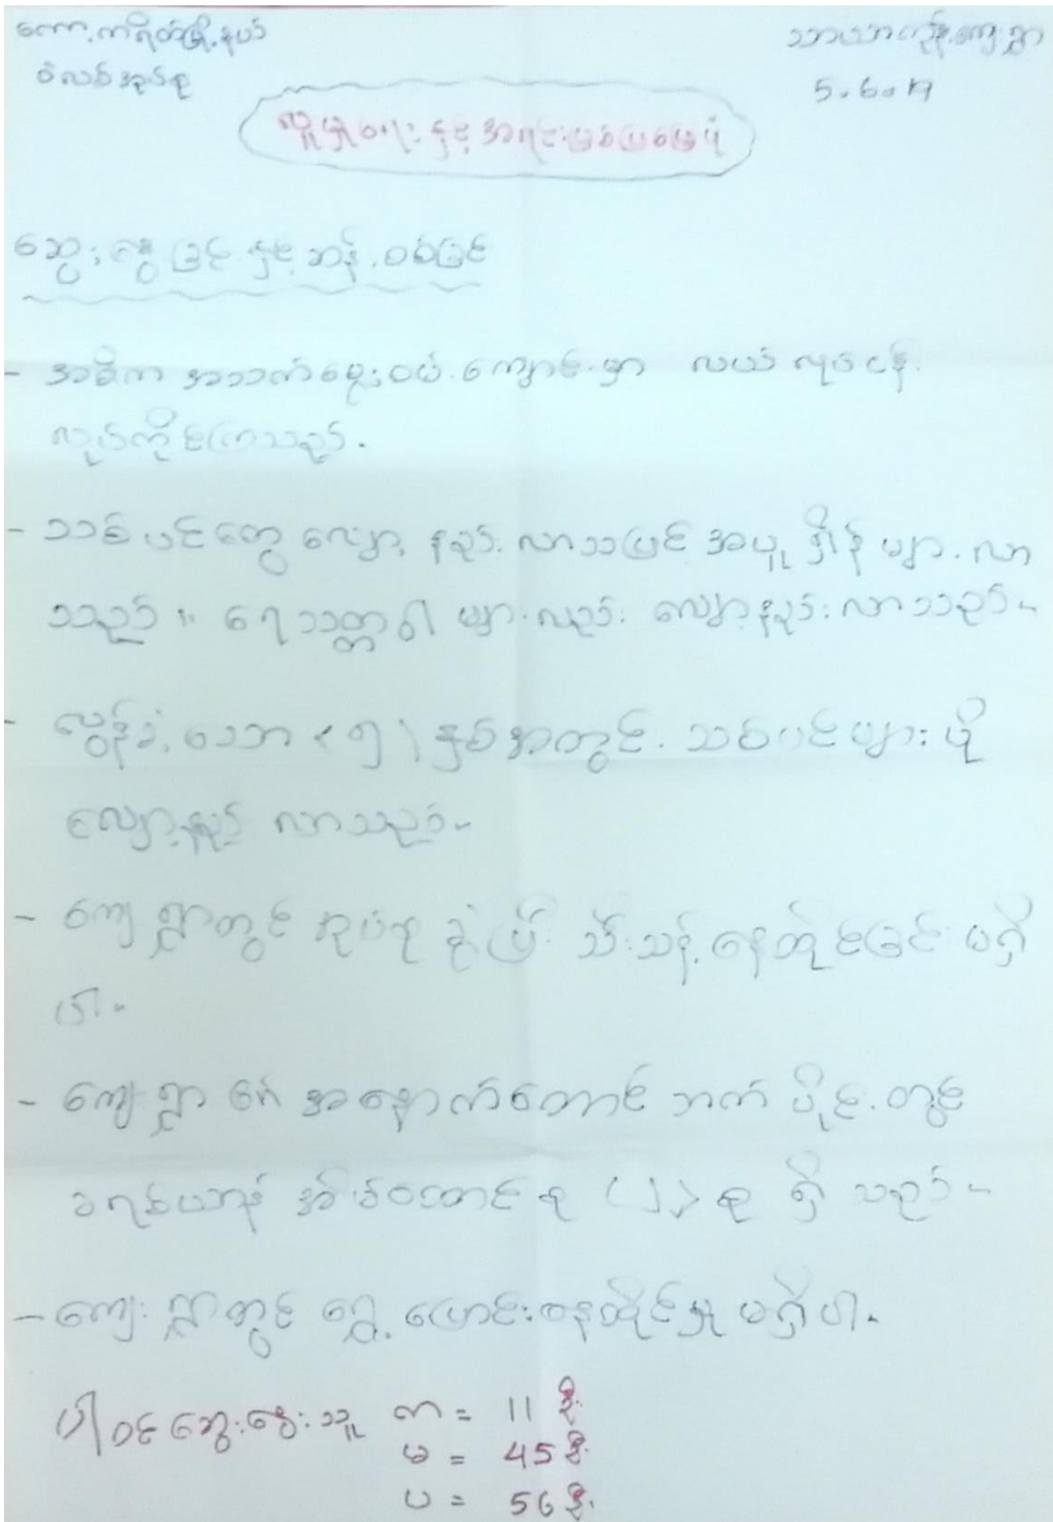 ကော့ကရိတ်မြို့နယ်
ဝဲလစ်အုပ်စု
သာယာကုန်းကျေးရွာ
5.6.19
လူမှုရေးနှင့်အရင်းမြစ်ပြမြေပုံ
ဆွေးနွေးခြင်းနှင့်ဆန်းစစ်ခြင်း
- အဓိက အသက်မွေးဝမ်းကျောင်းမှာ လယ်လုပ်ငန်း
လုပ်ကိုင်ကြသည်။
- သစ်ပင်တွေ လျော့နည်းလာသဖြင့် အပူရှိန်များလာ
သည်။ ရေသတ္တဝါများလည်း လျော့နည်းလာသည်။
- လွန်ခဲ့သော (၅) နှစ်အတွင်း သစ်ပင်များပို
လျော့နည်းလာသည်။
- ကျေးရွာတွင် အုပ်စုခွဲပြီး သီးသန့်နေထိုင်ခြင်း မရှိ
ပါ။
- ကျေးရွာ၏ အနောက်တောင်ဘက်ပိုင်းတွင်
ခရစ်ယာန် အိမ်ထောင်စု (၂) စု ရှိသည်။
- ကျေးရွာတွင် ရွှေ့ပြောင်းနေထိုင်မှု မရှိပါ။
ပါဝင်ဆွေးနွေးသူ ကျား = 11 ဦး
မ = 45 ဦး
ပ = 56 ဦး